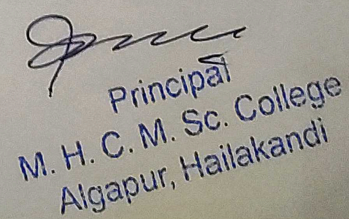 Principal
M. H. C. M. Sc. College
Algapur, Hailakandi